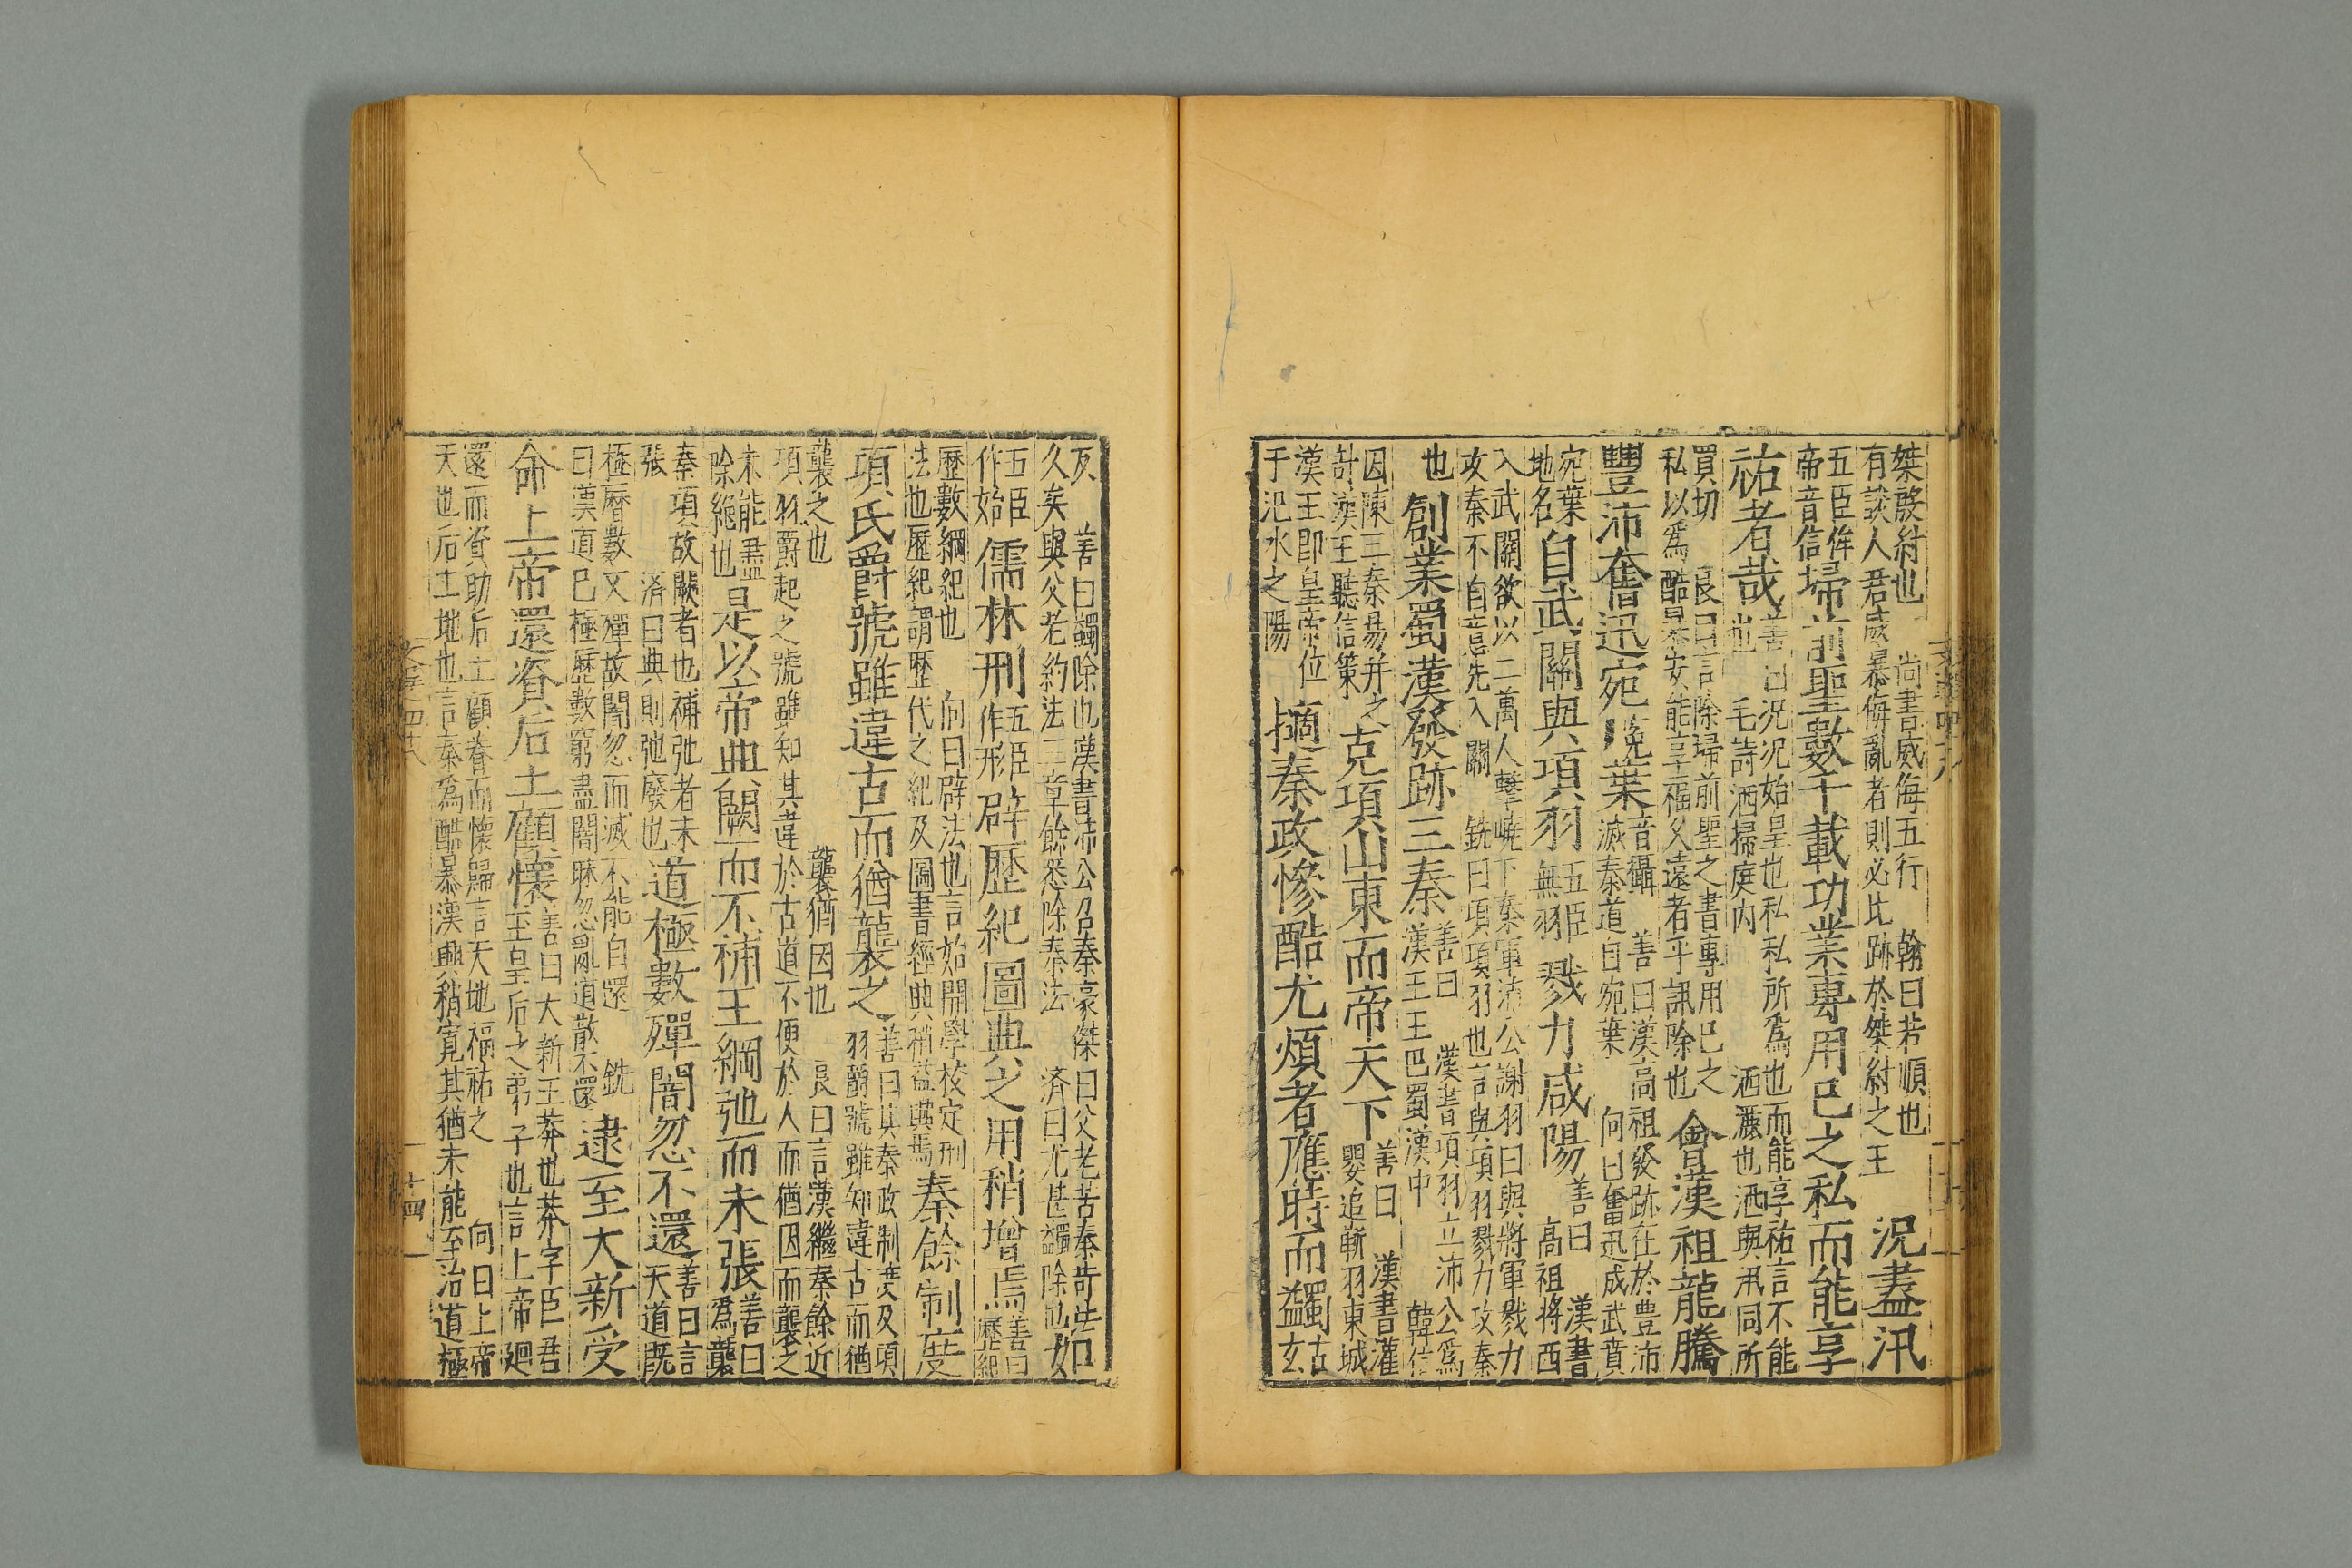 桀殷紂也 尚書威侮五行 翰曰若順也
有談人君威暴侮亂者則必比跡於桀紂之王
況盡汛
五臣侔
帝音信
埽前聖數千載功業專用已之私而能享
祐者哉
善曰況況始皇也私私所爲也而能享祐言不能
也 毛詩洒掃庭内 洒灑也洒與汛同所
買切 良曰言除埽前聖之書專用已之
私以爲酷暴安能享福久遠者乎訊除也
會漢祖龍騰
豐沛奮迅宛菀葉
音攝 善曰漢高祖發跡在於豊沛
滅秦道自宛葉 向曰奮迅成武賁
宛葉
地名
自武關與項羽
五臣
無羽
戮力咸陽
善曰 漢書
高祖将西
入武關欲以二萬人擊嶢下秦軍沛公謝羽曰與將軍戮力
攻秦不自意先入關 銑曰項項羽也言與項羽戮力攻秦
也
創業蜀漢發跡三秦
善曰 漢書項羽立沛公爲
漢王王巴蜀漢中 韓信
因陳三秦易并之
計漢王聽信策
克項山東而帝天下
善曰 漢書灌
嬰追斬羽東城
漢王即皇帝位
于汜水之陽
擿秦政慘酷尤煩者應時而蠲
古
玄
反 善曰蠲除也漢書沛公召秦豪傑曰父老苦秦苛法
久矣與父老約法三章餘悉除秦法 済曰尤甚蠲除也
如
五臣
作始
儒林刑
五臣
作形
辟歷紀圖典之用稍增焉
善曰
歷紀
歷數綱紀也 向曰辟法也言始開學校定刑
法也歷紀謂歷代之紀及圖書經典稍益其焉
秦餘制度
項氏爵號雖違古而猶襲之
善曰其秦政制度及項
羽爵號雖知違古而猶
襲之也 襲猶因也 良曰言漢繼秦餘近
項羽爵起之號雖知其違於古道不便於人而猶因而襲之
未能盡
除絶也
是以帝典闕而不補王綱弛而未張
善曰
爲襲
秦項故闕者也補弛者未
張 済曰典則弛廢也
道極數殫闇忽不還
善曰言
天道既
極曆數又殫故闇忽而滅不能自還 銑
曰漢道已極歷數窮盡闇昧忽亂道散不還
逮至大新受
命上帝還資后土顧懷
善曰大新王莽也莽字臣君
至皇后之弟子也言上帝廻
還而資助后土顧眷而懷歸言天地福祐之 向曰上帝
天也后土地也言秦爲酷暴漢興稍寛其猶未能至治道極
文選四十八
十四